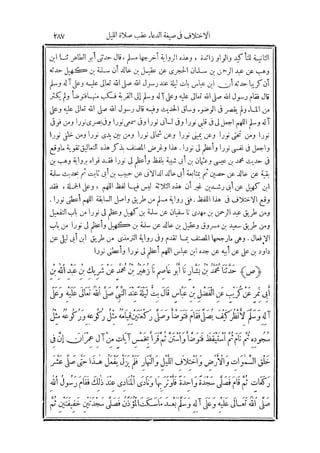 الاختلاف فى صيغة الدعاء عقب صلاة الليل ٢٨٧
الثانيـة للتأكيد والواو زائدة ، وهذه الرواية أخرجها مسلم، قال حدثنى أبو الطاهر ثنـا ابن
وهب عن عبد الرحمن بن سلمان الحجرى عن عقيل بن خالد أن سلمة بن كهيل حدثه
أن كريبا حدثه أن ابن عباس بات ليلة عند رسول الله صلى الله تعالى عليه وعلى آله وسلم
قال فقام رسول الله صلى الله تعالى عليه وعلى آله وسلم إلى القربة فسكب منها فتوضأ ولم يكثر
من الماء ولم يقصر فى الوضوء. وساق الحديث وفيه قال رسول الله صلى الله تعالى عليه وعلى
آله وسلم اللهم اجعل لى فى قلبى نورا وفى لسانى نورا وفى سمعى نورا وفى بصرى نورا ومن فوقى
نورا ومن تحتى نورا وعن يمينى نورا وعن شمالى نورا ومن بين يدى نورا ومن خلفى نورا
واجعل فى نفسى نورا وأعظم لى نورا . هذا وغرض المصنف بذكر هذه التعاليق تقوية ماوقع
فى حديث محمد بن عيسى وعثمان بن أبى شيبة بلفظ وأعظم لى نورا فقد قواه برواية وهب بن
بقية عن خالد عن حصين ثم بمتابعة أبى خالد الدالانى عن حبيب بن أبى ثابت ثم بحديث سلمة
ابن كهيل عن أبى رشدين غير أن هذه الثلاثة ليس فيهـا لفظ اللهم ، وعلى الجملة . فقد
وقع الاختلاف فى هذا اللفظ . ففى رواية مسلم من طريق واصل السابقة اللهم أعطنى نورا .
ومن طريق عبد الرحمن بن مهدى نا سفيان عن سلمة بن كهيل وعظم لى نورا من باب التفعيل
ومن طريق سعيد بن مسروق وعقيل بن خالد عن سلمة بن كهيل وأعظم لى نورا من باب
الإفعال . وهى مارجحها المصنف بمـا تقدم وفى رواية الترمذى من طريق ابن أبى ليلى عن
داود بن على عن أبيه عن جده ابن عباس اللهم أعظم لى نورا وأعطنى نورا
(ص) حَدَّثَنَا مُحَمَّدُ بْنُ بَشَّارٍ نَا أَبُو عَاصِمٍ نَا زُهَيْرُ بْنُ مُحَمَّدٍ عَنْ شَرِيكِ بْنِ عَبْدِ اللهِ بْنِ
أَبِى نَمِرٍ عَنْ كُرَيْبٍ عَنِ الْفَضْلِ بْنِ عَبَّاسٍ قَالَ بِتُّ لَيْلَةً عِنْدَ النَّبِىِّ صَلَّى اللهُ تَعَالَى عَلَيْهِ وَعَلَى
آلِهِ وَسَلَّمَ لِأَنْظُرَ كَيْفَ يُصَلِّى فَقَامَ فَتَوَضَّأَ وَصَلَّى رَكْعَتَيْنِ قِيَامُهُ مِثْلُ رُكُوعِهِ وَرُكُوعُهُ مِثْلُ
سُجُودِهِ ثُمَّ نَامَ ثُمَّ اسْتَيْقَظَ فَتَوَضَّأَ وَاسْتَنَّ ثُمَّ قَرَأَ بِخَمْسِ آيَاتٍ مِنْ آلِ عِمْرَانَ إِنَّ فِى
خَلْقِ السَّمَوَاتِ وَالْأَرْضِ وَاخْتِلَافِ اللَّيْلِ وَالنَّهَارِ فَلَمْ يَزَلْ يَفْعَلُ هَـذَا حَتَّى صَلَّى عَشْرَ
رَكَعَاتٍ ثُمَّ قَامَ فَصَلَّى سَجْدَةً وَاحِدَةً فَأَوْتَرَ بِهَا وَنَادَى الْمُنَادِى عِنْدَ ذَلِكَ فَقَامَ رَسُولُ اللهِ
صَلَّى اللهُ تَعَـالَى عَلَيْهِ وَعَلَى آلِهِ وَسَلَّمَ بَعْدَ مَاسَكَتَ الْمُؤَذِّنُ فَصَلَّى سَجْدَتَيْنِ خَفِيفَتَيْنِ ثُمَّ